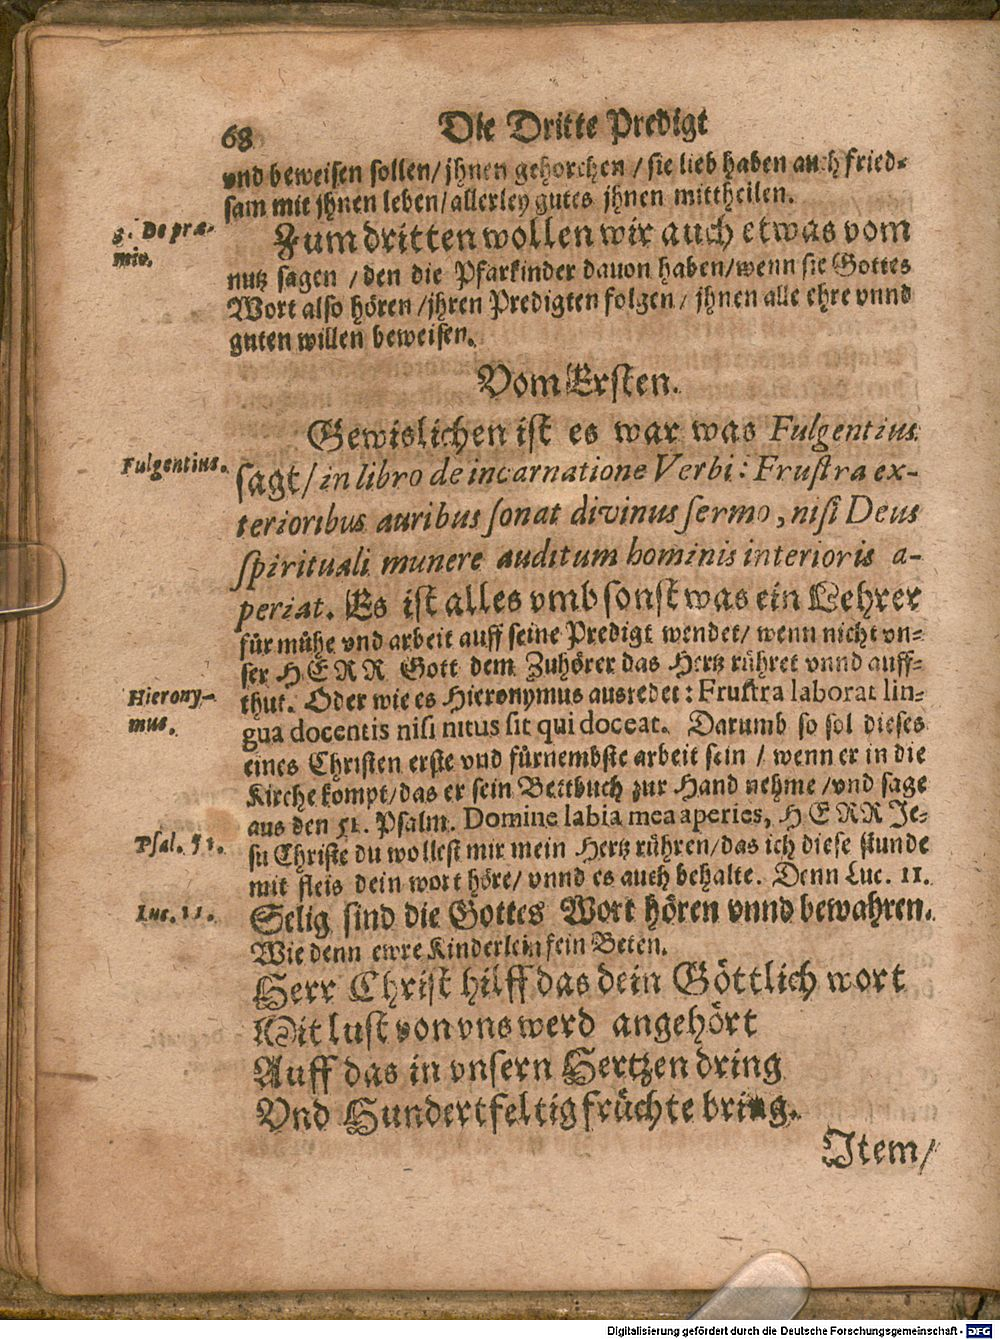 68
Die Dritte Predigt
vnd beweisen sollen/ jhnen gehorchen / sie lieb haben auch fried-
sam mit jhnen leben/ allerley gutes jhnen mittheilen.
3. De præ-
mio.
Zum dritten wollen wir auch etwas vom
nutz sagen / den die Pfarkinder dauon haben/ wenn sie Gottes
Wort also hören / jhren Predigten folgen / jhnen alle ehre vnnd
guten willen beweisen.
Vom Ersten.
Gewislichen ist es war was Fulgentius
Fulgentius.
sagt/ in libro de incarnatione Verbi: Frustra ex-
terioribus auribus sonat divinus sermo, nisi Deus
spirituali munere auditum hominis interioris a-
periat. Es ist alles vmbsonst was ein Lehrer
für mühe vnd arbeit auff seine Predigt wendet/ wenn nicht vn-
ser HERR Gott dem Zuhörer das Hertz rühret vnnd auff-
Hierony-
mus.
thut. Oder wie es Hieronymus ausredet: Frustra laborat lin-
gua docentis nisi intus sit qui doceat. Darumb so sol dieses
eines Christen erste vnd fürnembste arbeit sein / wenn er in die
Kirche kompt/ das er sein Bettbuch zur Hand nehme / vnd sage
aus den 51. Psalm. Domine labia mea aperies, HERR Je-
Psal. 51.
su Christe du wollest mir mein Hertz rühren/ das ich diese stunde
mit fleis dein wort höre/ vnnd es auch behalte. Denn Luc. 11.
Luc. 11.
Selig sind die Gottes Wort hören vnnd bewahren.
Wie denn ewre Kinderlein fein Beten.
Herr Christ hilff das dein Göttlich wort
Mit lust von vns werd angehört
Auff das in vnsern Hertzen dring
Vnd Hundertfeltig früchte bring.
Item/
Digitalisierung gefördert durch die Deutsche Forschungsgemeinschaft - DFG